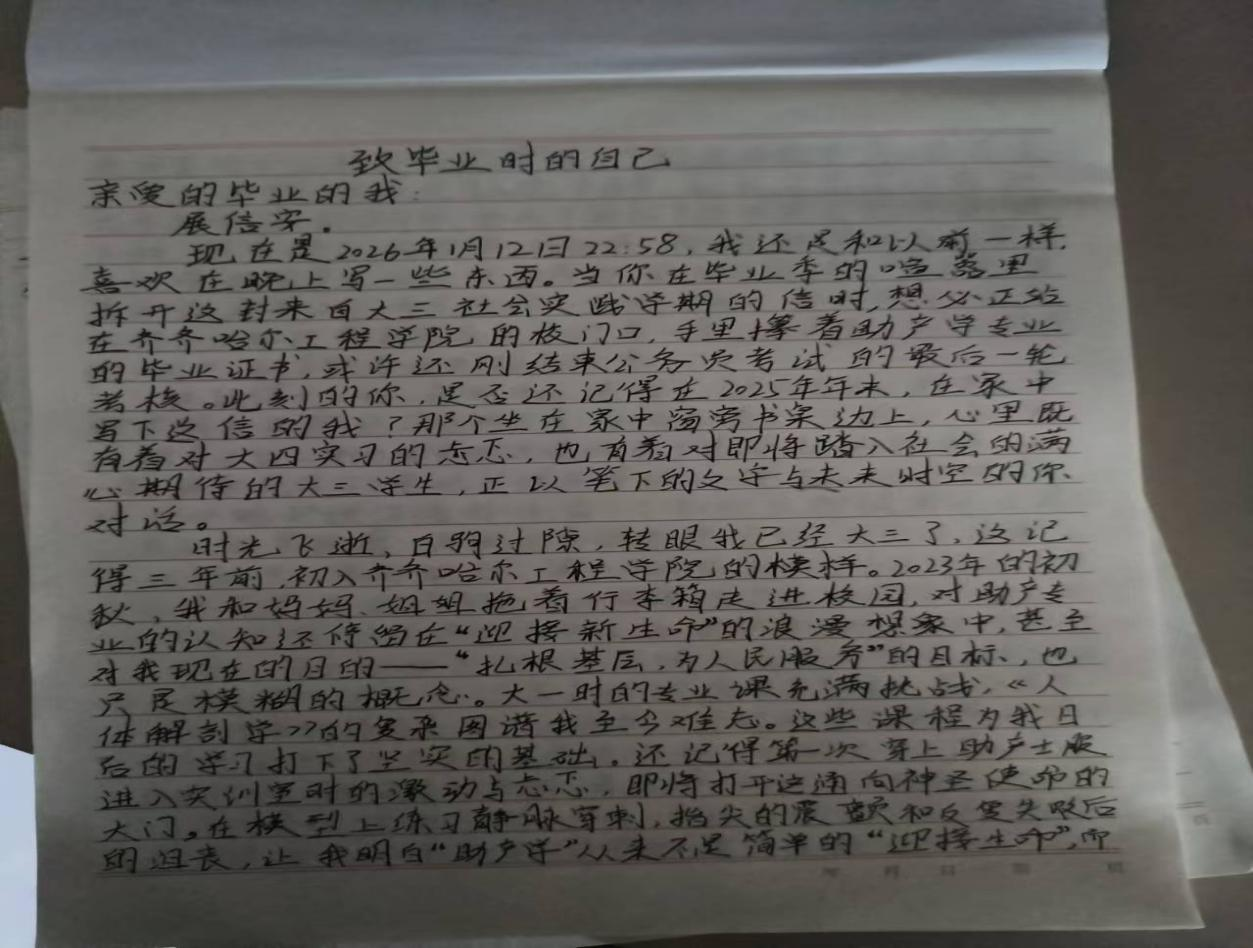 致毕业时的自己
亲爱的毕业的我:
展信安。
现在是2026年1月12日22:58,我还是和以前一样,
喜欢在晚上写一些东西。当你在毕业季的喧嚣里
拆开这封来自大三社会实践学期的信时,想必正站
在齐齐哈尔工程学院的校门口,手里攥着助产学专业
的毕业证书,或许还刚结束公务员考试的最后一轮
考核。此刻的你,是否还记得在2025年年末,在家中
写下这信的我?那个坐在家中窗旁书案边上,心里既
有着对大四实习的忐忑,也有着对即将踏入社会的满
心期待的大三学生,正以笔下的文字与未来时空的你
对话。
时光飞逝,白驹过隙,转眼我已经大三了,这记
得三年前,初入齐齐哈尔工程学院的模样。2023年的初
秋,我和妈妈、姐姐拖着行李箱走进校园,对助产专
业的认知还停留在“迎接新生命”的浪漫想象中,甚至
对我现在的目的——“扎根基层,为人民服务”的目标,也
只是模糊的概念。大一时的专业课充满挑战,《人
体解剖学》的复杂图谱我至今难忘。这些课程为我日
后的学习打下了坚实的基础。还记得第一次穿上助产士服
进入实训室时的激动与忐忑,即将打开这通向神圣使命的
大门。在模型上练习静脉穿刺,指尖的震颤和反复失败后
的沮丧,让我明白“助产学”从来不是简单的“迎接生命”,而
年 月 日